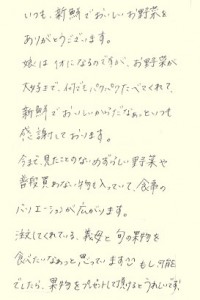 いつも、新鮮でおいしいお野菜を
ありがとうございます。
娘は1才になるのですが、お野菜が
大好きで、何でもパクパクたべてくれて、
新鮮でおいしいからだなぁといつも
感謝しております。
今まで、見たことのないめずらしい野菜や
普段買わない物も入っていて、食事の
バリエーションが広がります。
注文してくれている、義母と旬の果物を
食べたいなぁっと思っています もし可能
でしたら、果物をプレゼントして頂けるとうれしいです!